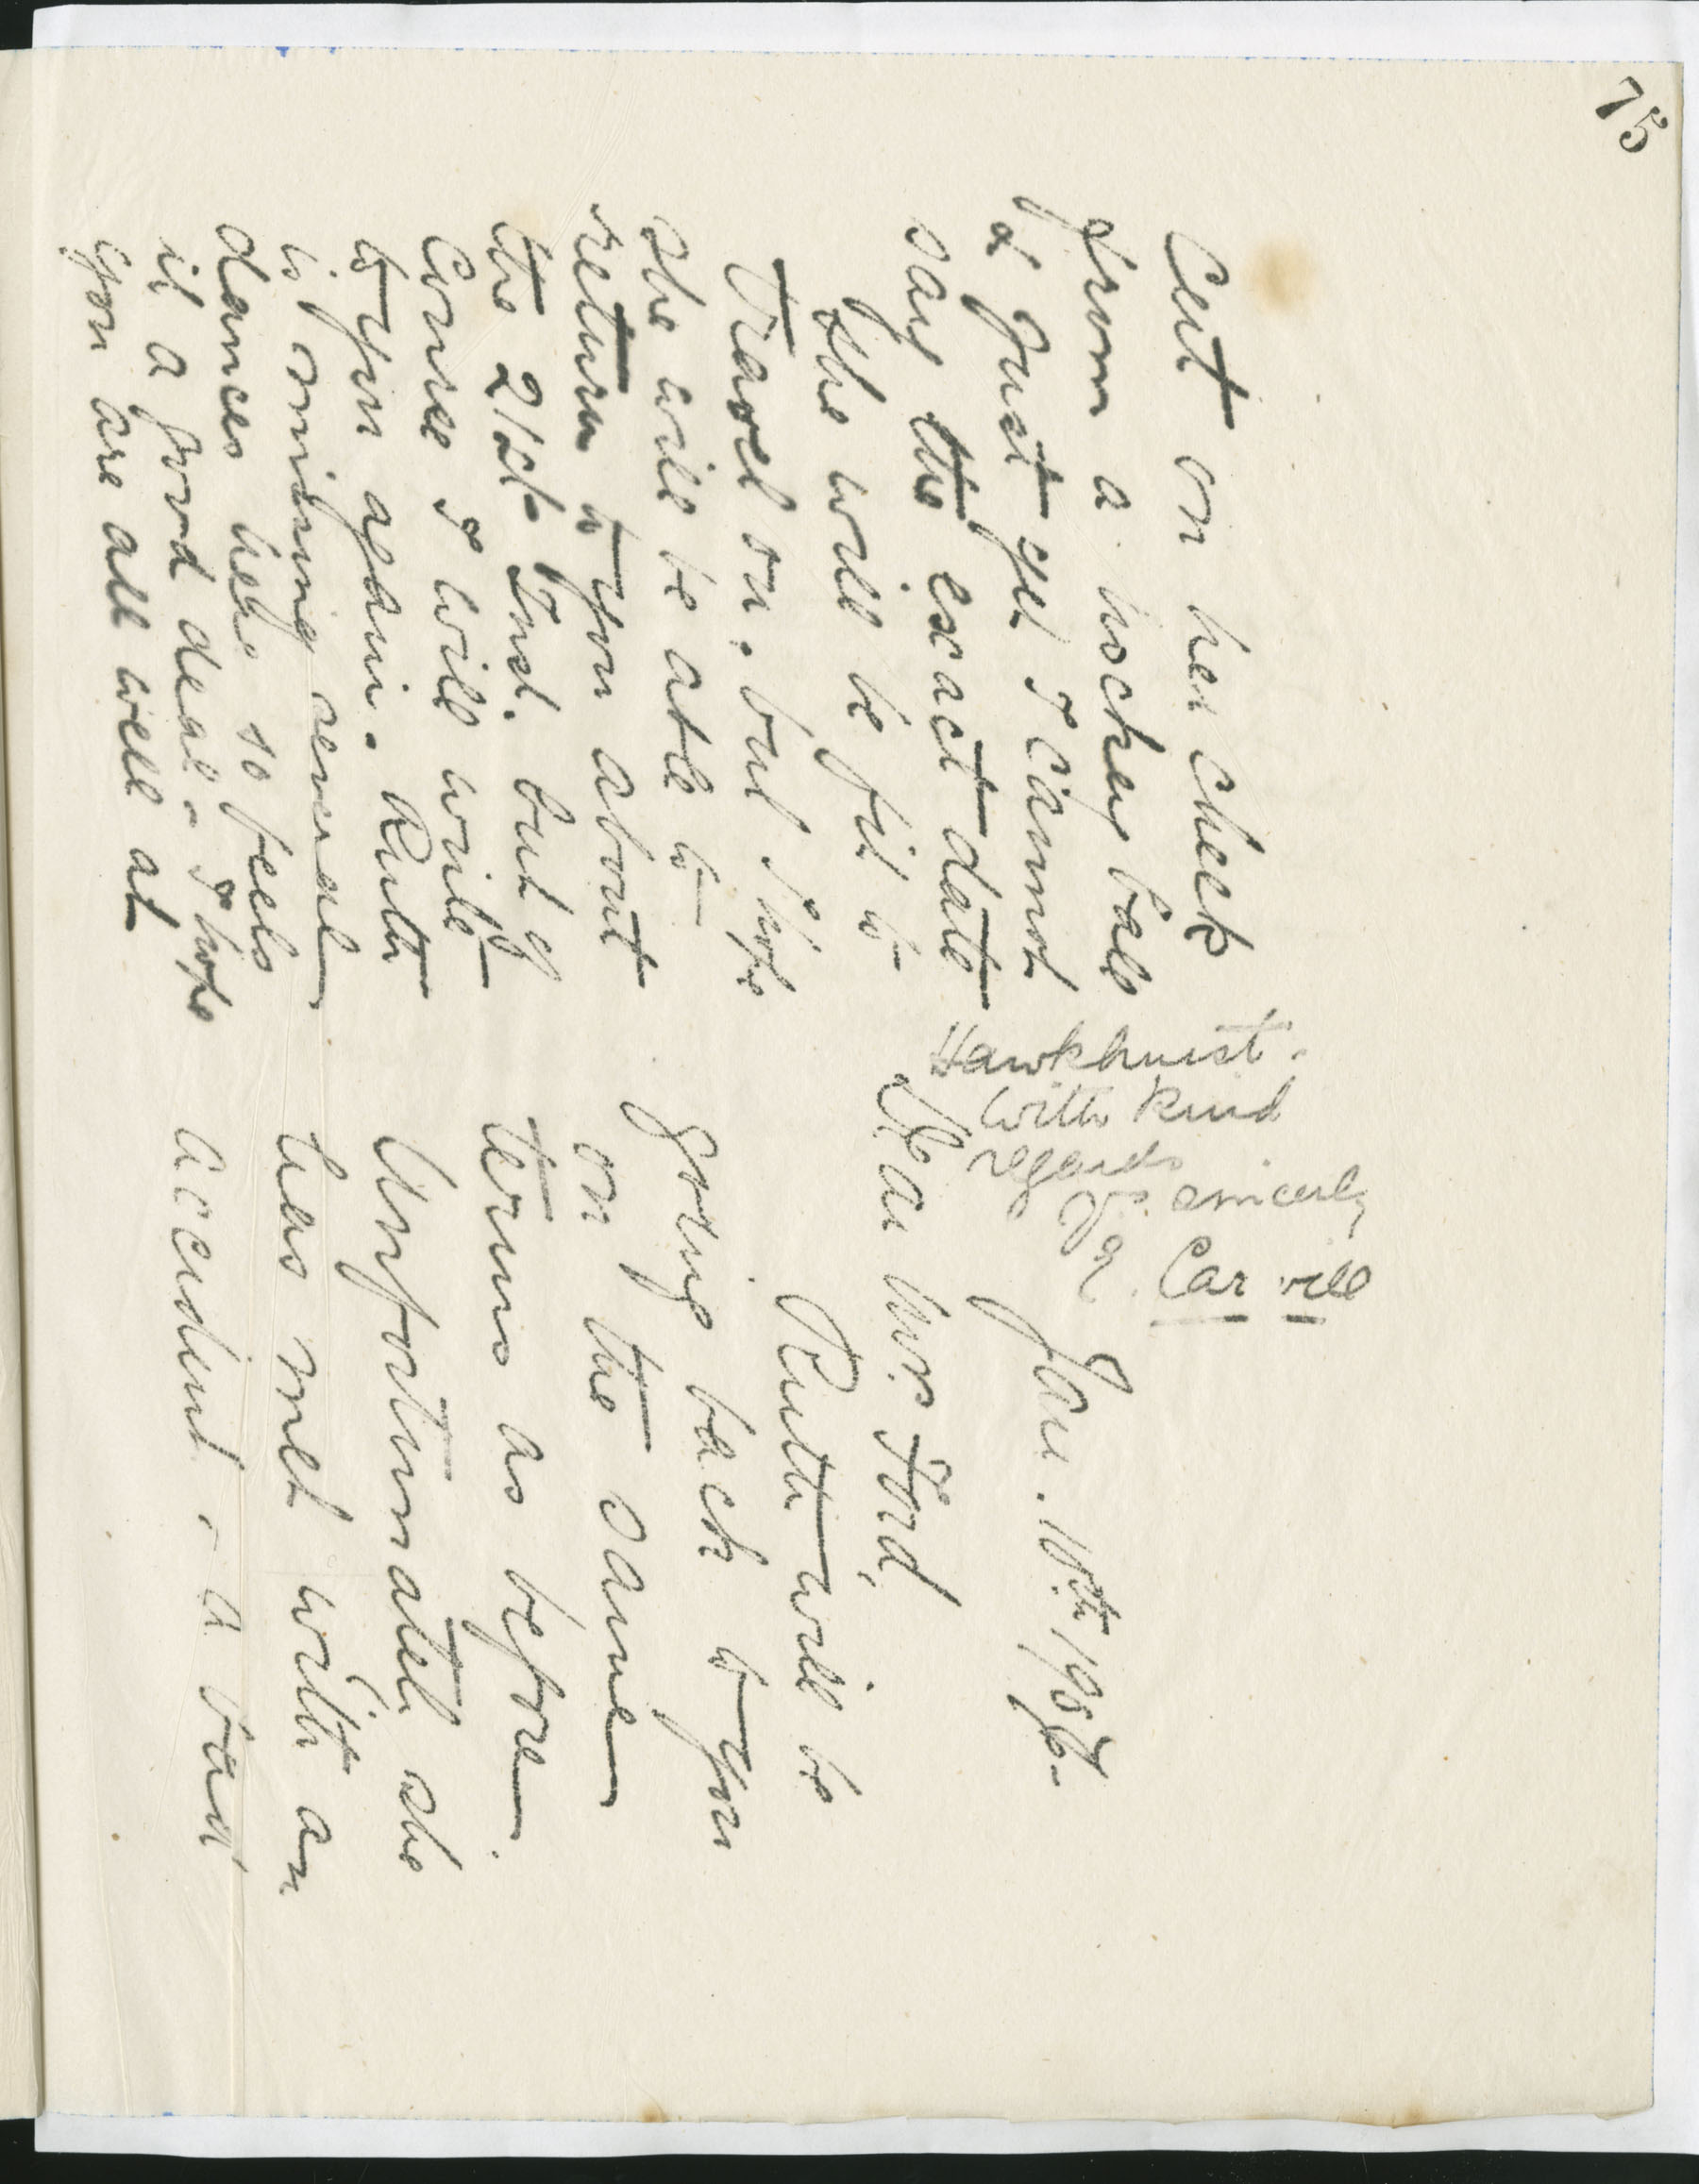 75
Jan. 10th
Dear Mrs Ford,
Ruth will be
going back to you
on the same
terms as before.
Unfortunately she
has met with an
accident - a bad
Cut on her cheek
from a hockey ball
& just yet I cannot
say the exact date
she will be fit to
Travel on. but I hope
she will be able to
return to you about
the 21st Inst. but of
Course I will write
to you again. Ruth
is missing several
dances here so feels
it a good deal - I hope
you are all well at
Hawkhurst.
With kind
regards
Yrs sincerely
Carvill